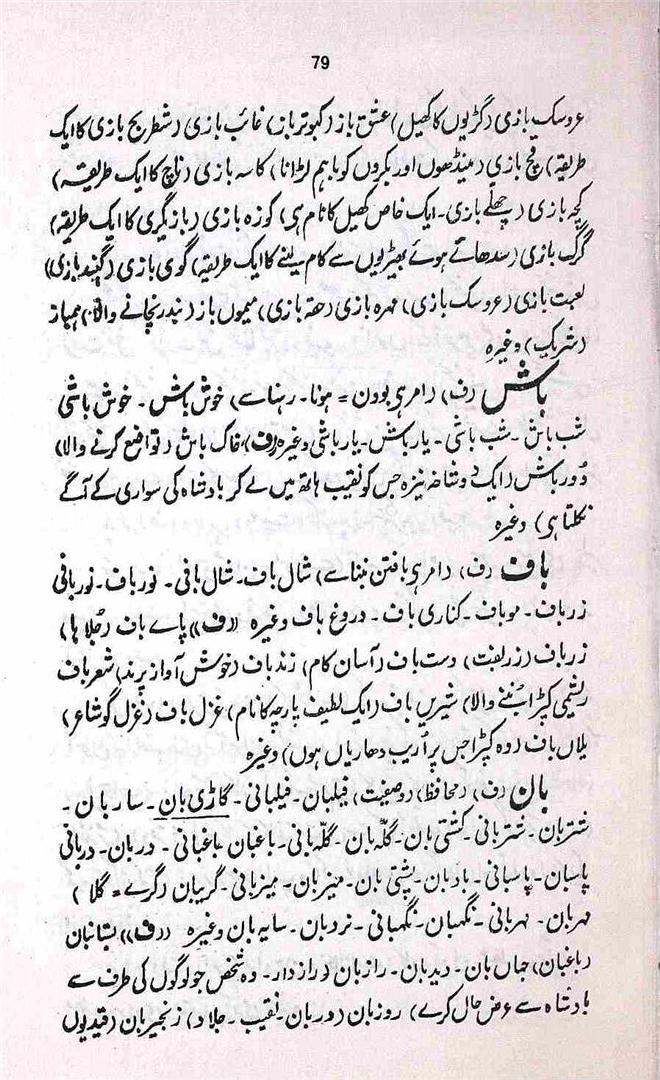 79
عروسک بازی (گڑیوں کا کھیل) عشق باز (کبوتر باز) غائب بازی (شطرنج بازی کا ایک
طریقہ) قچ بازی (مینڈھوں اور بکروں کو باہم لڑانا) کاسہ بازی (ناچ کا ایک طریقہ)
کچہ بازی (چھلّے بازی۔ ایک خاص کھیل کا نام ہی) کوزہ بازی (بازیگری کا ایک طریقہ)
گرگ بازی (سدھائے ہوئے بھیڑیوں سے کام لینے کا ایک طریقہ) گوی بازی (گیند بازی)
لعبت بازی (عروسک بازی) مہرہ بازی (حقہ بازی) میموں باز (بندر نچانے والا) ہمباز
(شریک) وغیرہ
باش (ف) (امر ہی بودن = ہونا۔ رہنا سے) خوش باش۔ خوش باشی
شب باش۔ شب باشی۔ یار باش۔ یار باشی وغیرہ ((ف)) خاک باش (تواضع کرنے والا)
دُور باش (ایک دو شاخہ نیزہ جس کو نقیب ہاتھ میں لے کر بادشاہ کی سواری کے آگے
نکلتا ہی) وغیرہ
باف (ف) (امر ہی بافتن بننا سے) شال باف۔ شال بافی۔ نور باف۔ نور بافی
زر باف۔ مو باف۔ کناری باف۔ دروغ باف وغیرہ ((ف)) پاے باف (جُلاہا)
زر باف (زر بفت) دست باف (آسان کام) زند باف (خوش آواز پرند) شعر باف
ریشمی کپڑا بُننے والا) شیریں باف (ایک لطیف پارچہ کا نام) غزل باف (غزل گو شاعر)
یلاں باف (وہ کپڑا جس پر اُریب دھاریاں ہوں) وغیرہ
بان (ف) (محافظ) (وصفیت) فیلبان۔ فیلبانی۔ گاڑی بان۔ ساربان۔
شتربان۔ شتربانی۔ کشتی بان۔ گلّہ بان۔ گلّہ بانی۔ باغبان باغبانی۔ دربان۔ دربانی
پاسبان۔ پاسبانی۔ بادبان۔ پشتی بان۔ میزبان۔ میزبانی۔ گریبان (گرے = گلا)
مہربان۔ مہربانی۔ نگہبان۔ نگہبانی۔ نردبان۔ سایہ بان وغیرہ ((ف)) بستانبان
(باغبان) جہاں بان۔ دیربان۔ رازبان (رازدار۔ وہ شخص جو لوگوں کی طرف سے
بادشاہ سے عرض حال کرے) روزبان (دربان۔ نقیب۔ جلاد) زنجیربان (قیدیوں